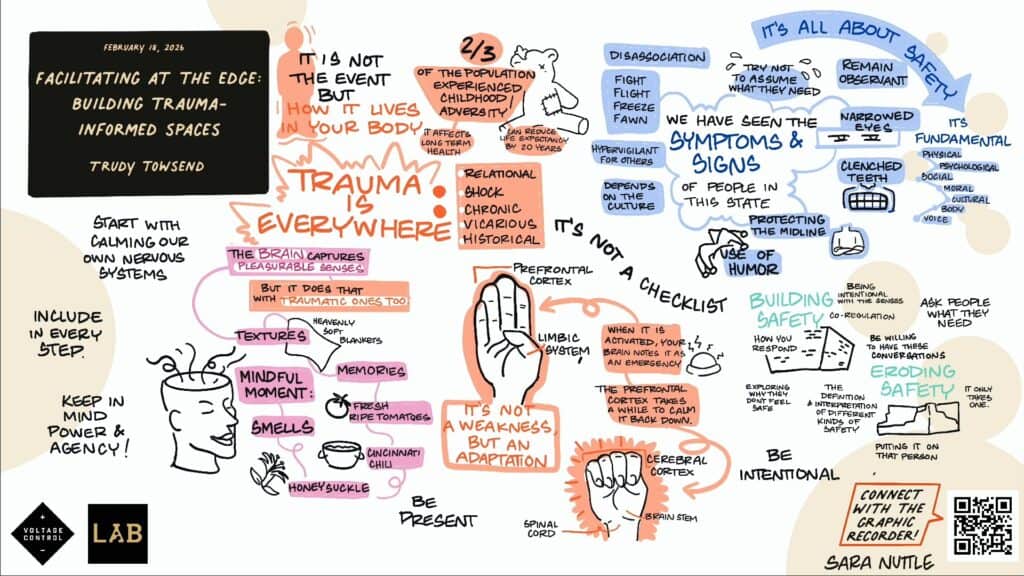 FEBRUARY 18, 2026
FACILITATING AT THE EDGE:
BUILDING TRAUMA-
INFORMED SPACES
TRUDY TOWSEND
IT IS NOT
THE EVENT
BUT
HOW IT LIVES
IN YOUR BODY
2/3
OF THE POPULATION
EXPERIENCED
CHILDHOOD
ADVERSITY!
IT AFFECTS
LONG TERM
HEALTH
CAN REDUCE
LIFE EXPECTANCY
BY 20 YEARS
TRAUMA
IS
EVERYWHERE
RELATIONAL
SHOCK
CHRONIC
VICARIOUS
HISTORICAL
DISASSOCIATION
FIGHT
FLIGHT
FREEZE
FAWN
HYPERVIGILANT
FOR OTHERS
DEPENDS
ON THE
CULTURE
TRY NOT
TO ASSUME
WHAT THEY NEED
WE HAVE SEEN THE
SYMPTOMS &
SIGNS
OF PEOPLE IN
THIS STATE
IT'S ALL ABOUT SAFETY
REMAIN
OBSERVANT
NARROWED
EYES
CLENCHED
TEETH
PROTECTING
THE MIDLINE
USE OF
HUMOR
IT'S
FUNDAMENTAL
PHYSICAL
PSYCHOLOGICAL
SOCIAL
MORAL
CULTURAL
BODY
VOICE
IT'S NOT A CHECKLIST
START WITH
CALMING OUR
OWN NERVOUS
SYSTEMS
INCLUDE
IN EVERY
STEP.
KEEP IN
MIND
POWER &
AGENCY!
THE BRAIN CAPTURES
PLEASURABLE SENSES
BUT IT DOES THAT
WITH TRAUMATIC ONES TOO
TEXTURES
HEAVENLY
SOFT
BLANKETS
MINDFUL
MOMENT:
MEMORIES
SMELLS
FRESH
RIPE TOMATOES
CINCINNATI
CHILI
HONEYSUCKLE
PREFRONTAL
CORTEX
LIMBIC
SYSTEM
WHEN IT IS
ACTIVATED, YOUR
BRAIN NOTES IT AS
AN EMERGENCY
THE PREFRONTAL
CORTEX TAKES
A WHILE TO CALM
IT BACK DOWN.
IT'S NOT
A WEAKNESS,
BUT AN
ADAPTATION
CEREBRAL
CORTEX
BRAIN STEM
SPINAL
CORD
BE
PRESENT
BUILDING
SAFETY
BEING
INTENTIONAL
WITH THE SENSES
CO-REGULATION
ASK PEOPLE
WHAT THEY
NEED
HOW YOU
RESPOND
BE WILLING
TO HAVE THESE
CONVERSATIONS
ERODING
SAFETY
EXPLORING
WHY THEY
DONT FEEL
SAFE
THE
DEFINITION
& INTERPRETATION
OF DIFFERENT
KINDS OF
SAFETY
IT ONLY
TAKES
ONE.
PUTTING IT ON
THAT PERSON
BE
INTENTIONAL
VOLTAGE
CONTROL
LAB
CONNECT
WITH THE
GRAPHIC
RECORDER!
SARA NUTTLE